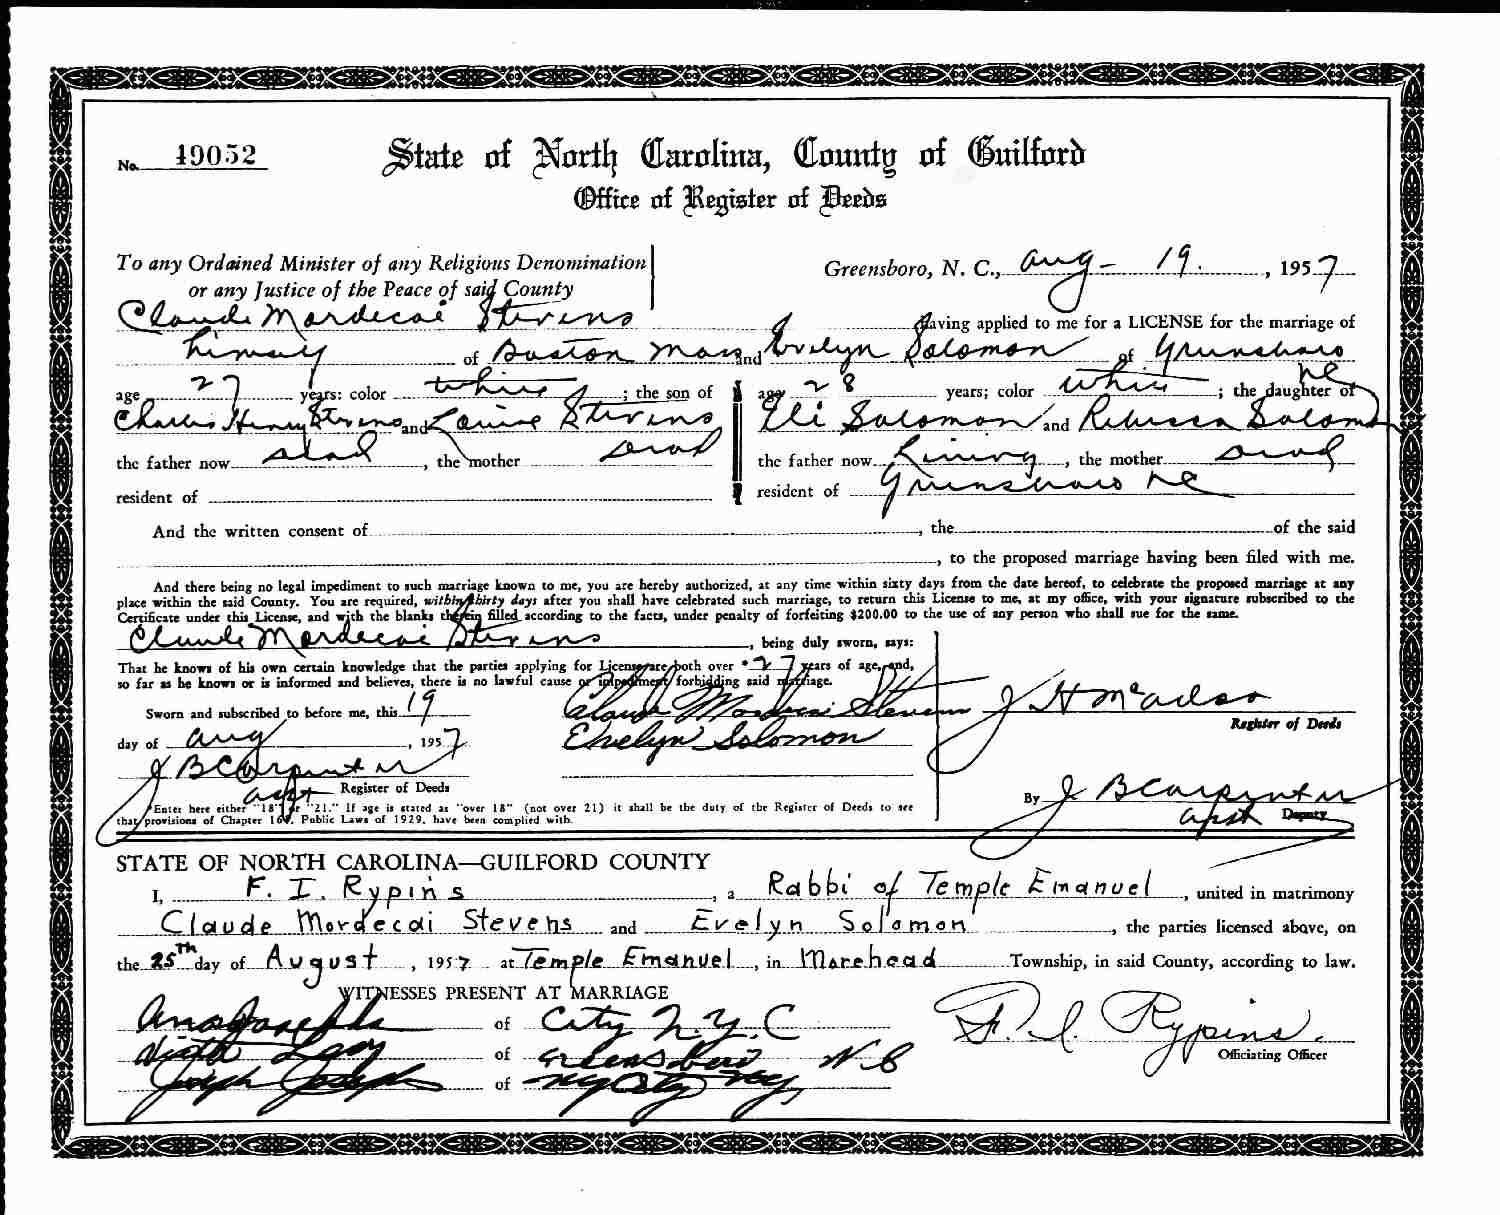 No. 49052
State of North Carolina, County of Guilford
Office of Register of Deeds
To any Ordained Minister of any Religious Denomination
or any Justice of the Peace of said County
Greensboro, N. C., Aug - 19. , 1957
Claude Mordecai Stevens having applied to me for a LICENSE for the marriage of
himself of Boston Mass and Evelyn Solomon of Greensboro NC
age 27 years: color white ; the son of
Charles Henry Stevens and Louise Stevens
the father now dead , the mother dead
resident of
age 28 years; color white ; the daughter of
Eli Solomon and Rebecca Solomon
the father now living , the mother dead
resident of Greensboro NC
And the written consent of , the of the said
, to the proposed marriage having been filed with me.
And there being no legal impediment to such marriage known to me, you are hereby authorized, at any time within sixty days from the date hereof, to celebrate the proposed marriage at any
place within the said County. You are required, within thirty days after you shall have celebrated such marriage, to return this License to me, at my office, with your signature subscribed to the
Certificate under this License, and with the blanks therein filled according to the facts, under penalty of forfeiting $200.00 to the use of any person who shall sue for the same.
Claude Mordecai Stevens , being duly sworn, says:
That he knows of his own certain knowledge that the parties applying for License are both over *27 years of age, and,
so far as he knows or is informed and believes, there is no lawful cause or impediment forbidding said marriage.
Sworn and subscribed to before me, this 19
day of Aug , 1957
J B Carpenter
asst Register of Deeds
Claude Mordecai Stevens
Evelyn Solomon
*Enter here either "18" or "21." If age is stated as "over 18" (not over 21) it shall be the duty of the Register of Deeds to see
that provisions of Chapter 160. Public Laws of 1929, have been complied with.
J H McAdoo
Register of Deeds
By J B Carpenter
asst Deputy
STATE OF NORTH CAROLINA—GUILFORD COUNTY
I, F. I. Rypins , a Rabbi of Temple Emanuel , united in matrimony
Claude Mordecai Stevens and Evelyn Solomon , the parties licensed above, on
the 25th day of August , 1957 at Temple Emanuel , in Morehead Township, in said County, according to law.
WITNESSES PRESENT AT MARRIAGE
of City N.Y.C
Levy of Greensboro N C
Joseph Joseph of
F. I. Rypins.
Officiating Officer